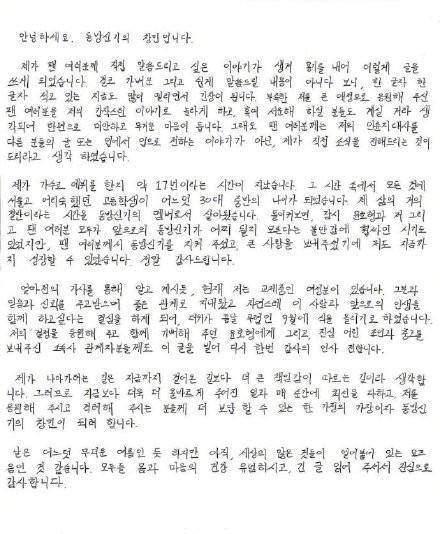 안녕하세요. 동방신기의 창민입니다.
제가 팬 여러분께 직접 말씀드리고 싶은 이야기가 생겨 용기를 내어 이렇게 글을
쓰게 되었습니다. 결코 가벼운 그리고 쉽게 말씀드릴 내용이 아니다 보니, 한 글자 한
글자 적고 있는 지금도 많이 떨리면서 긴장이 됩니다. 부족한 저를 큰 애정으로 응원해 주신
팬 여러분을 저의 갑작스런 이야기로 놀라게 하고, 혹여 서운해 하실 분들도 계실 거라 생
각되어 한편으로 미안하고 무거운 마음이 듭니다. 그래도 팬 여러분께는 저의 인륜지대사를
다른 분들의 글 또는 입에서 입으로 전하는 이야기가 아닌, 제가 직접 소식을 전해드리는 것이
도리라고 생각 하였습니다.
제가 가수로 데뷔를 한지 약 17년이라는 시간이 지났습니다. 그 시간 속에서 모든 것에
서툴고 어리숙했던 고등학생이 어느덧 30대 중반의 나이가 되었습니다. 제 삶의 거의
절반이라는 시간을 동방신기의 멤버로서 살아왔습니다. 돌이켜보면, 잠시 윤호형과 저 그리
고 팬 여러분 모두가 앞으로의 동방신기가 어찌 될지 모른다는 불안감에 휩싸인 시기도
있었지만, 팬 여러분께서 동방신기를 지켜 주셨고, 큰 사랑을 보내주셨기에 저도 지금까
지 성장할 수 있었습니다. 정말 감사드립니다.
얼마전의 기사를 통해 알고 계시듯, 현재 저는 교제중인 여성분이 있습니다. 그분과
믿음과 신뢰를 주고받으며 좋은 관계로 지내왔고 자연스레 이 사람과 앞으로의 인생을
함께 하고싶다는 결심을 하게 되어, 더위가 끝날 무렵인 9월에 식을 올리기로 하였습니다.
저의 결정을 응원해 주고 함께 기뻐해 주던 윤호형에게 그리고, 진심 어린 조언과 충고를
보내주신 소속사 관계자분들께도 이 글을 빌어 다시 한번 감사의 인사 전합니다.
제가 나아가려는 길은 지금까지 걸어온 길보다 더 큰 책임감이 따르는 길이라 생각합
니다. 그러므로 지금보다 더욱 더 올바르게 주어진 일과 매 순간에 최선을 다하고, 저를
응원해 주시고 격려해 주시는 분들께 더 보답 할 수 있는 한 가정의 가장이자 동방신
기의 창민이 되려 합니다.
날은 어느덧 무더운 여름인 듯 하지만 아직, 세상의 많은 것들이 얼어붙어 있는 요즈
음인 것 같습니다. 모두들 몸과 마음의 건강 유념하시고, 긴 글 읽어 주셔서 진심으로
감사합니다.